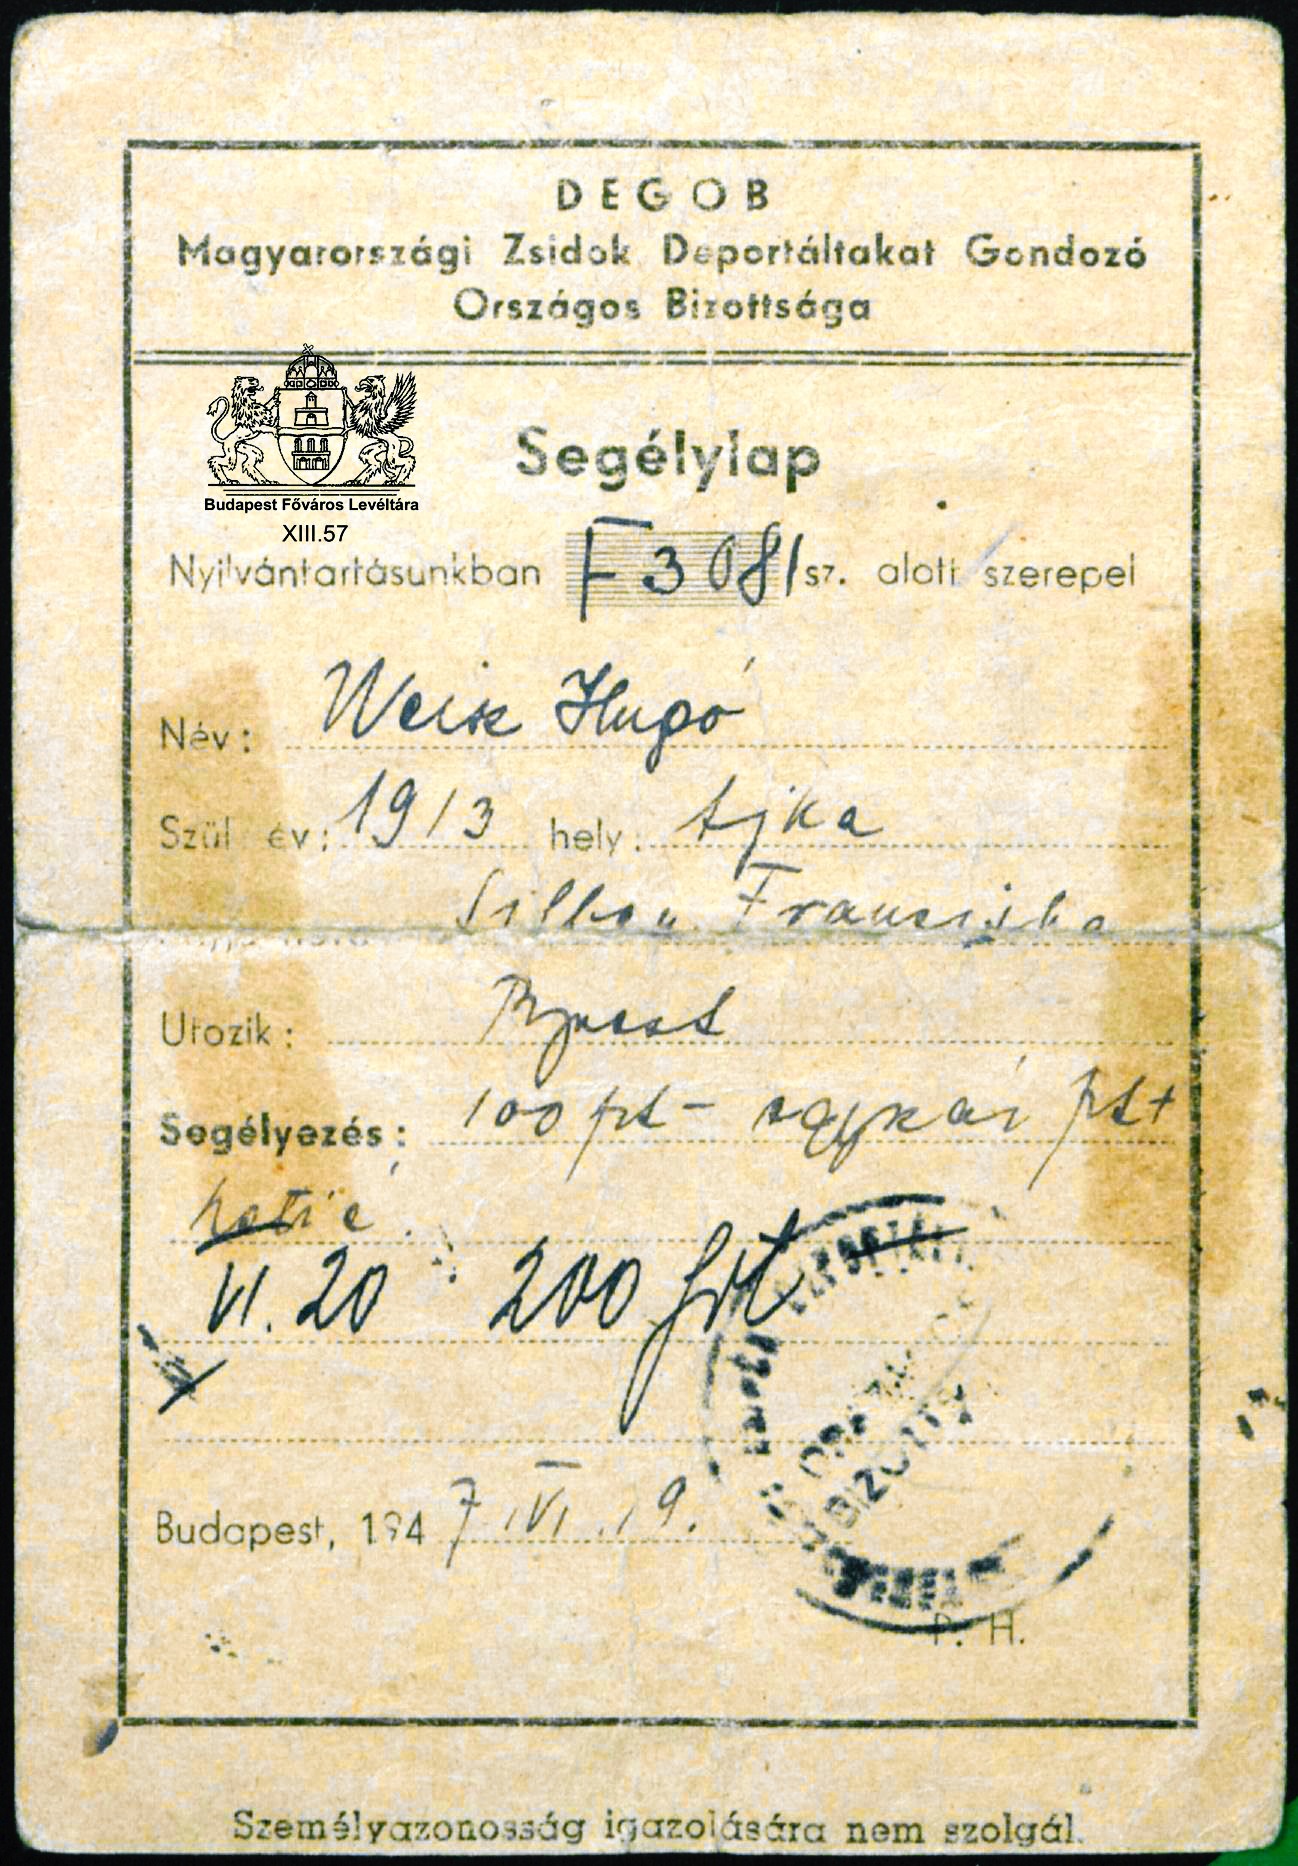 DEGOB
Magyarországi Zsidok Deportáltakat Gondozó
Országos Bizottsága
Budapest Főváros Levéltára
XIII.57
Segélylap
Nyilvántartásunkban F 3081 sz. alatt szerepel
Név: Weisz Hugó
Szül. év: 1913 hely: Ajka
Franciska
Utazik: Bpest
Segélyezés: 100 frt -
VI. 20 200 frt
ORSZÁGOS
BIZOTTS
Budapest, 1947 VI. 19.
P. H.
Személyazonosság igazolására nem szolgál.